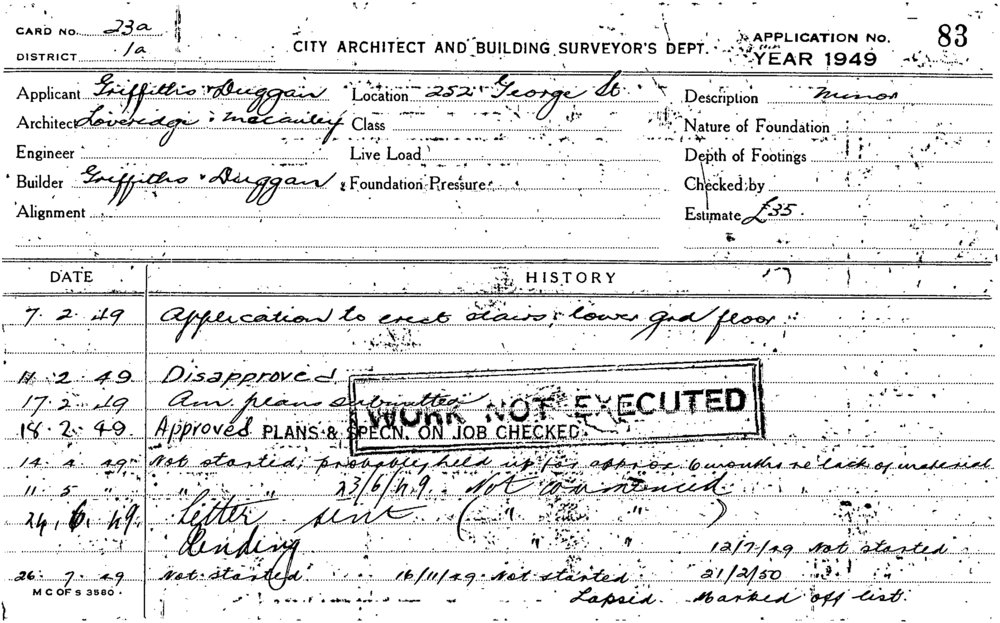 CARD NO. 23a
DISTRICT 1a
CITY ARCHITECT AND BUILDING SURVEYOR'S DEPT.
APPLICATION No. 83
YEAR 1949
Applicant Griffiths & Duggan Location 252 George St. Description minor
Architect Loveridge & Macauley Class Nature of Foundation
Engineer Live Load Depth of Footings
Builder Griffiths & Duggan Foundation Pressure Checked by
Alignment Estimate £35.
DATE HISTORY
7. 2. 49 Application to erect stairs, lower grd floor
11. 2. 49 Disapproved
17. 2. 49 Am. plans submitted
WORK NOT EXECUTED
18. 2. 49 Approved PLANS & SPECN. ON JOB CHECKED.
14. 4. 49 Not started; probably held up for approx 6 months re lack of material
11. 5 " " " 23/6/49. Not commenced
24. 6. 49. Letter sent ( " " )
Pending " " 12/7/49 Not started
26. 7. 49 Not started 16/11/49. Not started 21/2/50
M C OF S 3580 Lapsed. Marked off list.